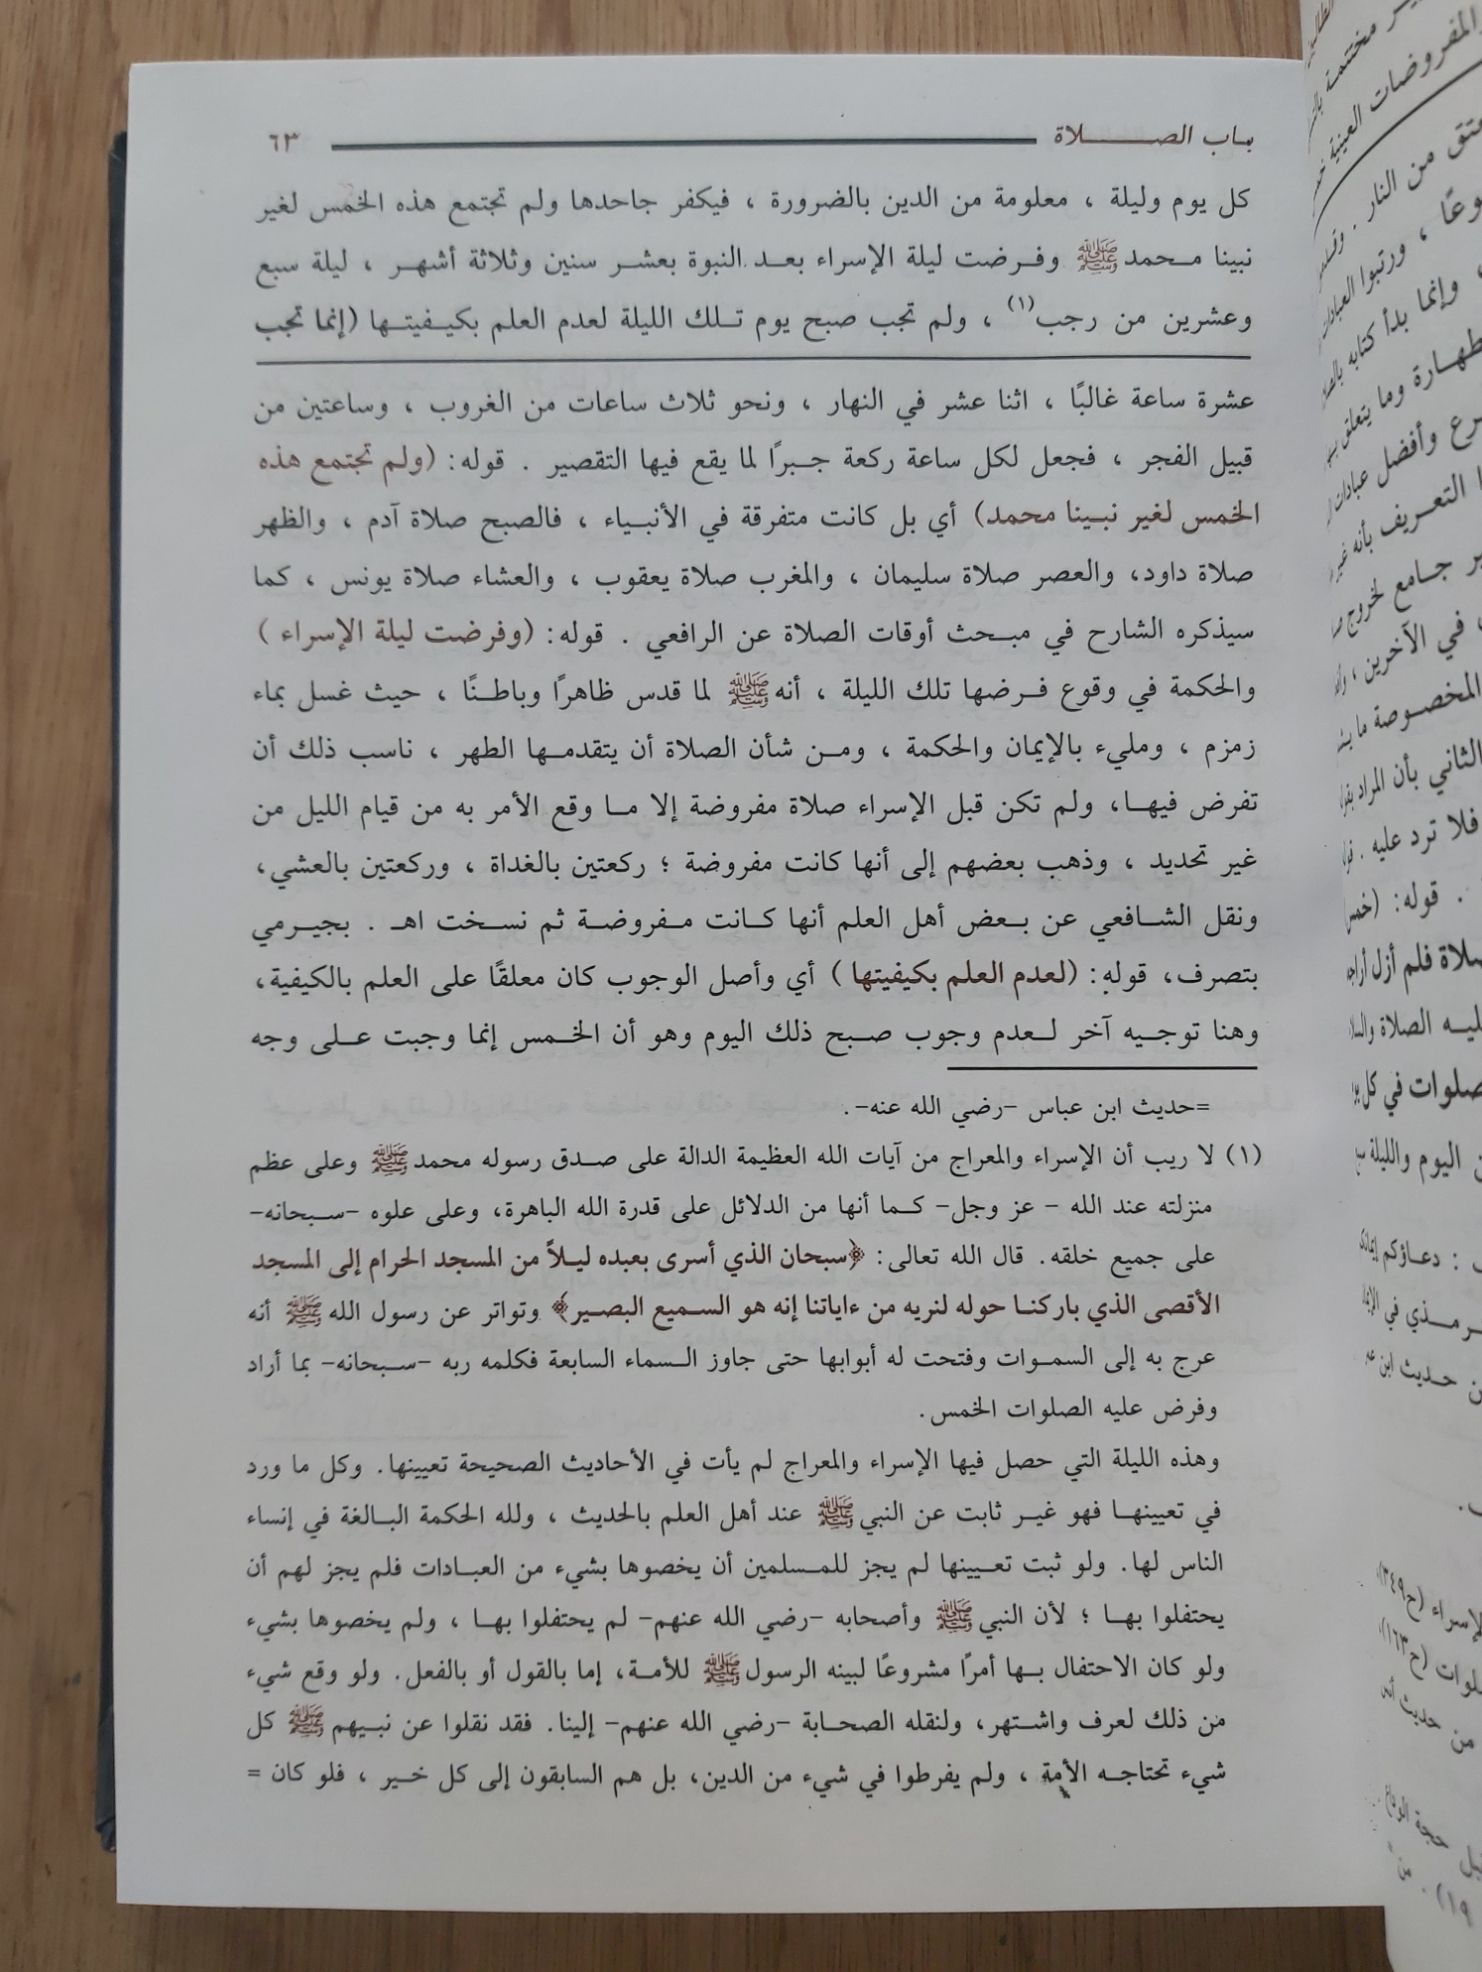 باب الصـــــــلاة ٦٣
كل يوم وليلة ، معلومة من الدين بالضرورة ، فيكفر جاحدها ولم تجتمع هذه الخمس لغير
نبينا محمد ﷺ وفرضت ليلة الإسراء بعد النبوة بعشر سنين وثلاثة أشهر ، ليلة سبع
وعشرين من رجب(١) ، ولم تجب صبح يوم تلك الليلة لعدم العلم بكيفيتها (إنما تجب
عشرة ساعة غالبًا ، اثنا عشر في النهار ، ونحو ثلاث ساعات من الغروب ، وساعتين من
قبيل الفجر ، فجعل لكل ساعة ركعة جبرًا لما يقع فيها التقصير . قوله: (ولم تجتمع هذه
الخمس لغير نبينا محمد) أي بل كانت متفرقة في الأنبياء ، فالصبح صلاة آدم ، والظهر
صلاة داود، والعصر صلاة سليمان ، والمغرب صلاة يعقوب ، والعشاء صلاة يونس ، كما
سيذكره الشارح في مبحث أوقات الصلاة عن الرافعي . قوله: (وفرضت ليلة الإسراء )
والحكمة في وقوع فرضها تلك الليلة ، أنه ﷺ لما قدس ظاهرًا وباطنًا ، حيث غسل بماء
زمزم ، ومليء بالإيمان والحكمة ، ومن شأن الصلاة أن يتقدمها الطهر ، ناسب ذلك أن
تفرض فيها، ولم تكن قبل الإسراء صلاة مفروضة إلا ما وقع الأمر به من قيام الليل من
غير تحديد ، وذهب بعضهم إلى أنها كانت مفروضة ؛ ركعتين بالغداة ، وركعتين بالعشي،
ونقل الشافعي عن بعض أهل العلم أنها كانت مفروضة ثم نسخت اهـ . بجيرمي
بتصرف، قوله: (لعدم العلم بكيفيتها ) أي وأصل الوجوب كان معلقًا على العلم بالكيفية،
وهنا توجيه آخر لعدم وجوب صبح ذلك اليوم وهو أن الخمس إنما وجبت على وجه
=حديث ابن عباس -رضي الله عنه-.
(١) لا ريب أن الإسراء والمعراج من آيات الله العظيمة الدالة على صدق رسوله محمد ﷺ وعلى عظم
منزلته عند الله - عز وجل- كما أنها من الدلائل على قدرة الله الباهرة، وعلى علوه -سبحانه-
على جميع خلقه. قال الله تعالى: ﴿سبحان الذي أسرى بعبده ليلاً من المسجد الحرام إلى المسجد
الأقصى الذي باركنا حوله لنريه من ءاياتنا إنه هو السميع البصير﴾ وتواتر عن رسول الله ﷺ أنه
عرج به إلى السموات وفتحت له أبوابها حتى جاوز السماء السابعة فكلمه ربه -سبحانه- بما أراد
وفرض عليه الصلوات الخمس.
وهذه الليلة التي حصل فيها الإسراء والمعراج لم يأت في الأحاديث الصحيحة تعيينها. وكل ما ورد
في تعيينها فهو غير ثابت عن النبي ﷺ عند أهل العلم بالحديث ، ولله الحكمة البالغة في إنساء
الناس لها. ولو ثبت تعيينها لم يجز للمسلمين أن يخصوها بشيء من العبادات فلم يجز لهم أن
يحتفلوا بها ؛ لأن النبي ﷺ وأصحابه -رضي الله عنهم- لم يحتفلوا بها ، ولم يخصوها بشيء
ولو كان الاحتفال بها أمرًا مشروعًا لبينه الرسول ﷺ للأمة، إما بالقول أو بالفعل. ولو وقع شيء
من ذلك لعرف واشتهر، ولنقله الصحابة -رضي الله عنهم- إلينا. فقد نقلوا عن نبيهم ﷺ كل
شيء تحتاجه الأمة ، ولم يفرطوا في شيء من الدين، بل هم السابقون إلى كل خير ، فلو كان =